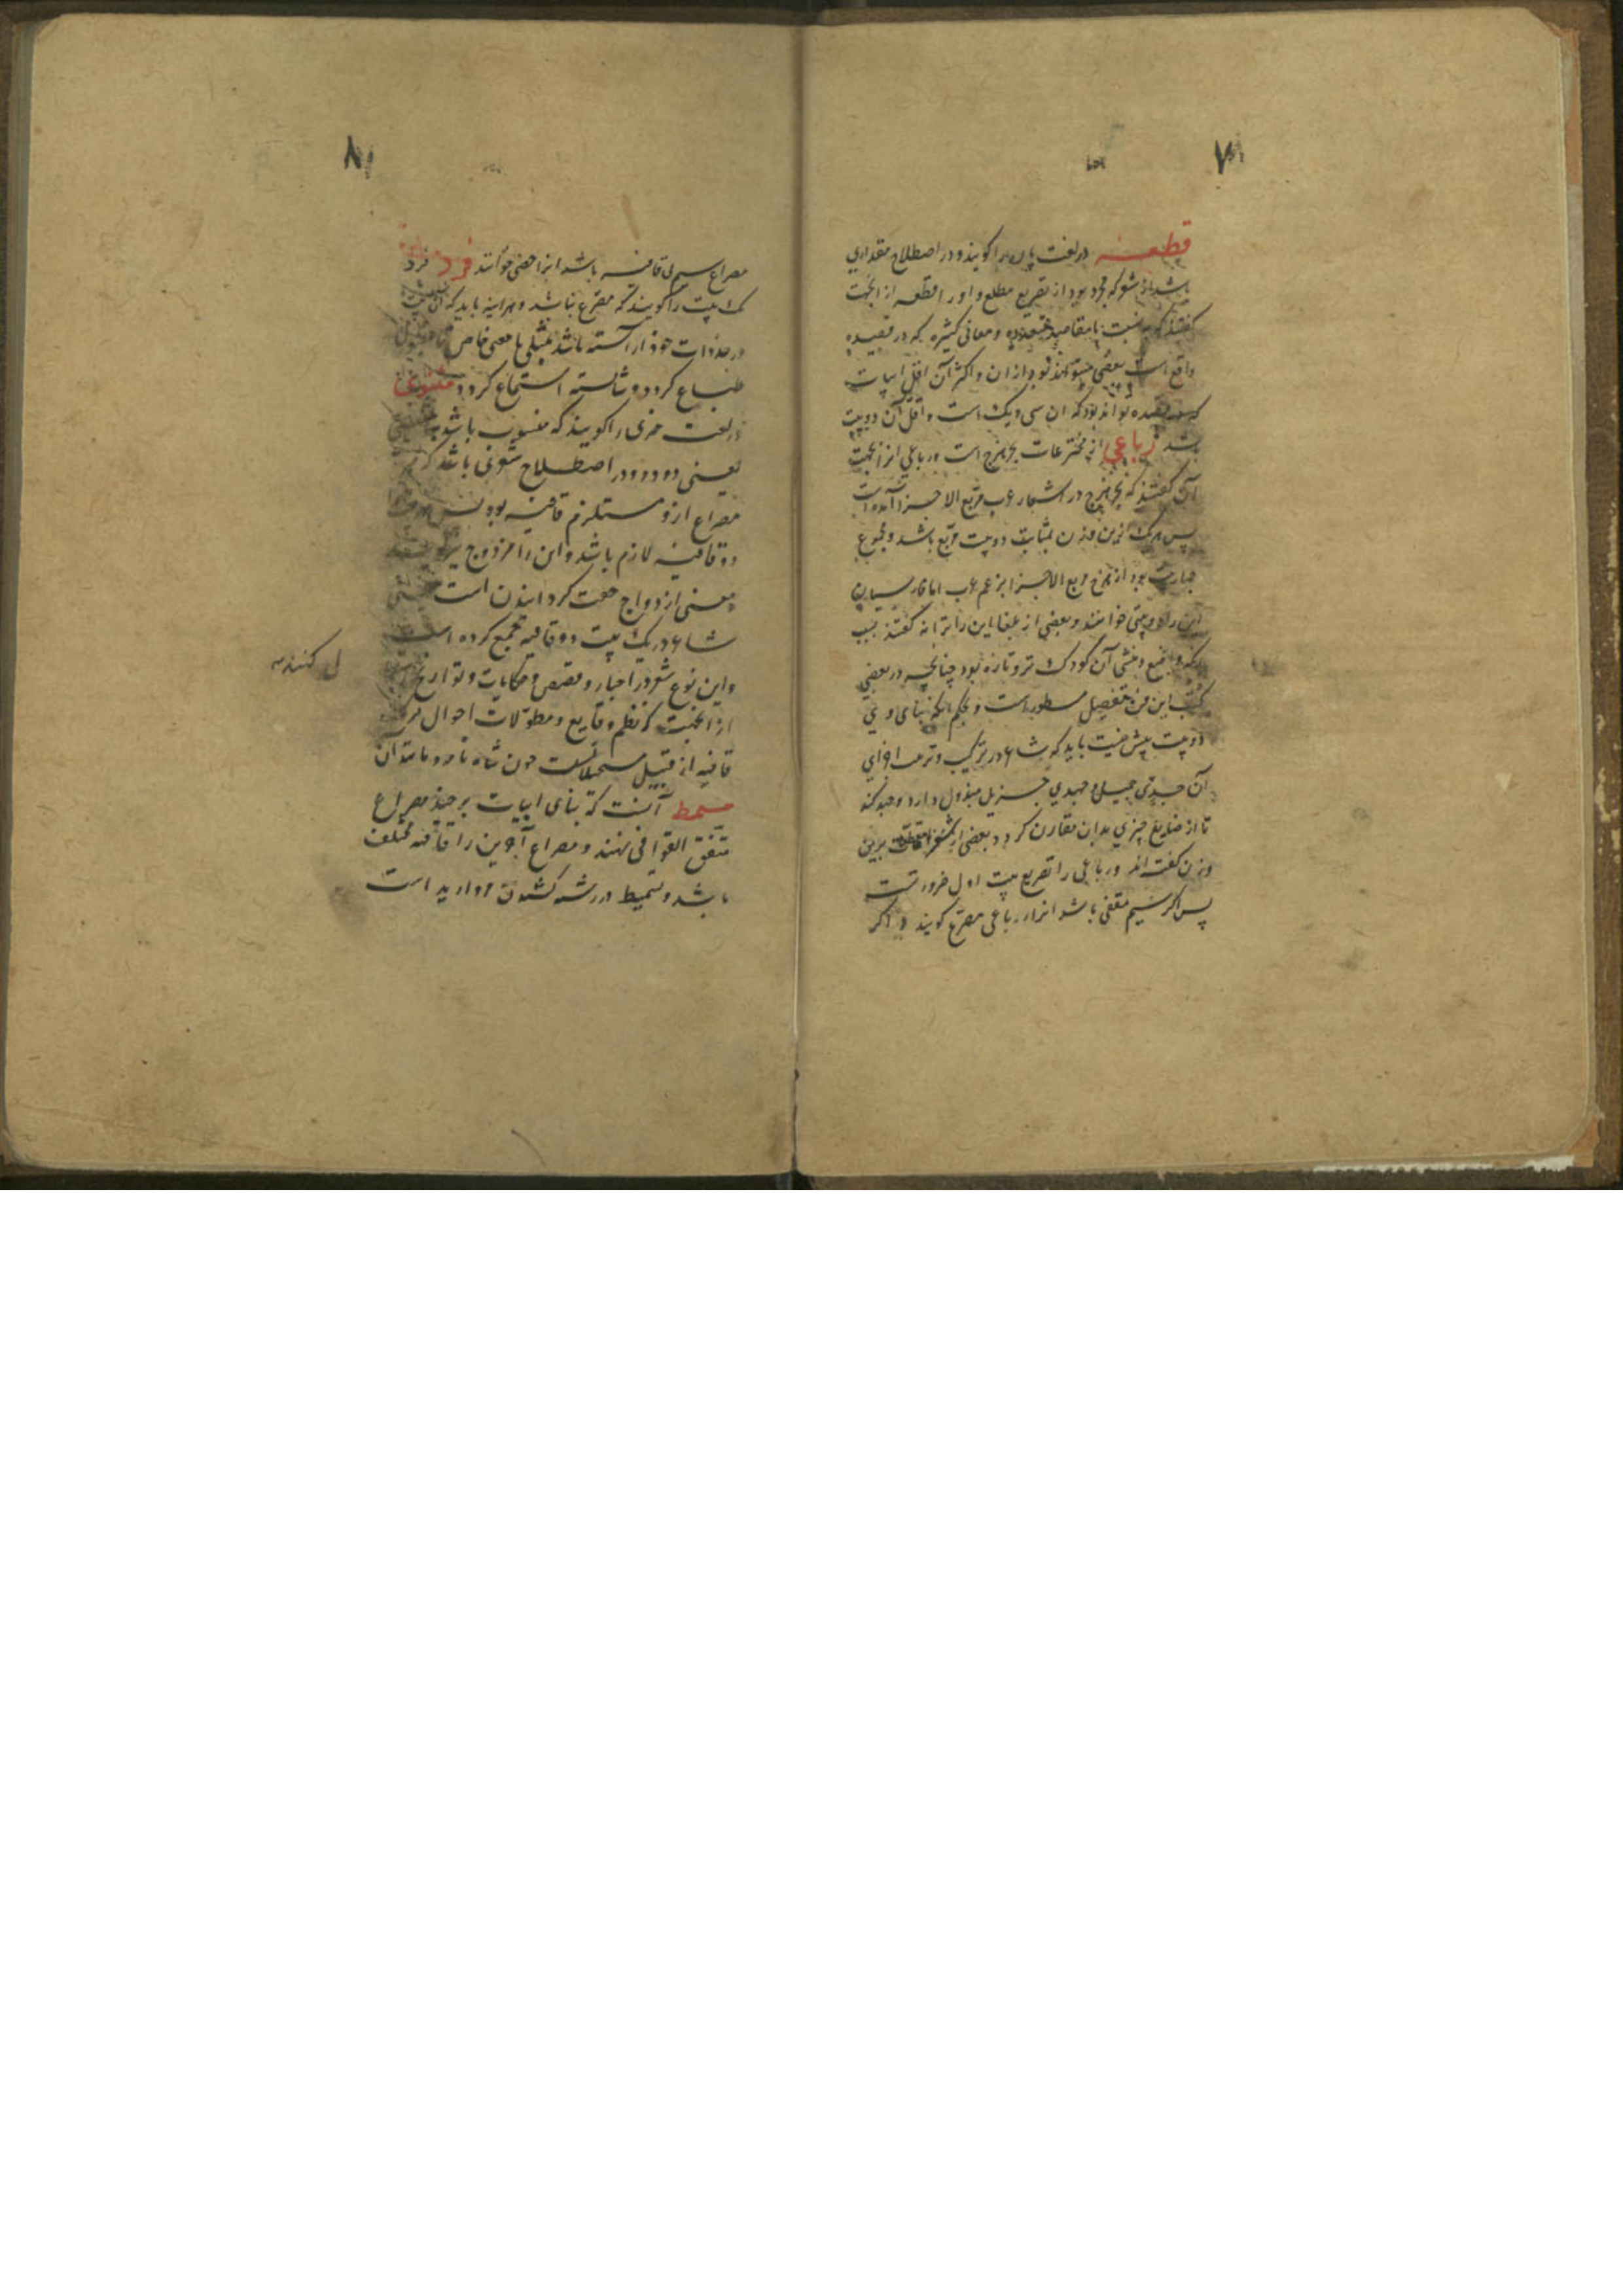 ۷
قطعه در لغت پاره را گویند و در اصطلاح مقداری
باشد از شعر که مجرد بود از تقریع مطلع و او را قطعه از انجهت
گفتند که نسبت با مقاصد متعدده و معانی کثیره که در قصیده
واقع است بعضی بود از ان و اکثر آن اقل ابیات
قصیده تواند بود که ان سی و یک است و اقل آن دو بیت
باشد رباعی از مخترعات بحر هزج است و رباعی از انجهت
آن گفتند که بحر هزج در اشعار عرب مربع الاجزا آمده است
پس هر یک ازین وزن بمثابت دو بیت مربع باشد و مجموع
عبارت بود از هزج مربع الاجزا بزعم عرب اما فارسیان
این را دو بیتی خوانند و بعضی از بلغا این را ترانه گفتند بسبب
آنکه واضع و منشی آن کودک تر و تازه بود چنانچه در بعضی
کتب این فن بتفصیل مسطور است و بحکم آنکه بنای وی
دو بیت بیش نیست باید که شاعر در ترکیب و ترتیب اجزای
آن جدی جمیل و جهدی جزیل مبذول دارد و جهد کند
تا از صنایع چیزی بدان مقارن کردد بعضی از شعرا برین
وزن گفته اند و رباعی را تقریع بیت اول ضرورتست
پس اکر سیم مقفی باشد انرا رباعی مصرع گویند و اکر
۸
مصراع سیم بی قافیه باشد انرا خصی خوانند فرد فرد
یک بیت را گویند که مصرع نباشد و هراینه باید که آن بیت
در حد ذات خود اراسته باشد بمثلی یا معنی خاص تا مقبول
طباع کردد و شایسته استماع کردد مثنوی
در لغت چیزی را گویند که منسوب باشد
یعنی دو دو و در اصطلاح شعری باشد که هر
مصراع ازو مستلزم قافیه بود پس
دو قافیه لازم باشد و این را مزدوج نیز گویند
و معنی ازدواج جفت کردانیدن است یعنی
شاعر در یک بیت دو قافیه جمع کرده است
و این نوع شعر در اخبار و قصص و حکایات و تواریخ
از انجهت که نظم وقایع و مطولات احوال بر یک
قافیه از قبیل مستحیلاتست چون شاه نامه و مانند آن
مسمط آنست که بنای ابیات بر چند مصراع
متفق القوافی نهند و مصراع آخرین را قافیه مختلف
باشد و تسمیط در رشته کشیدن مروارید است
ل کنند